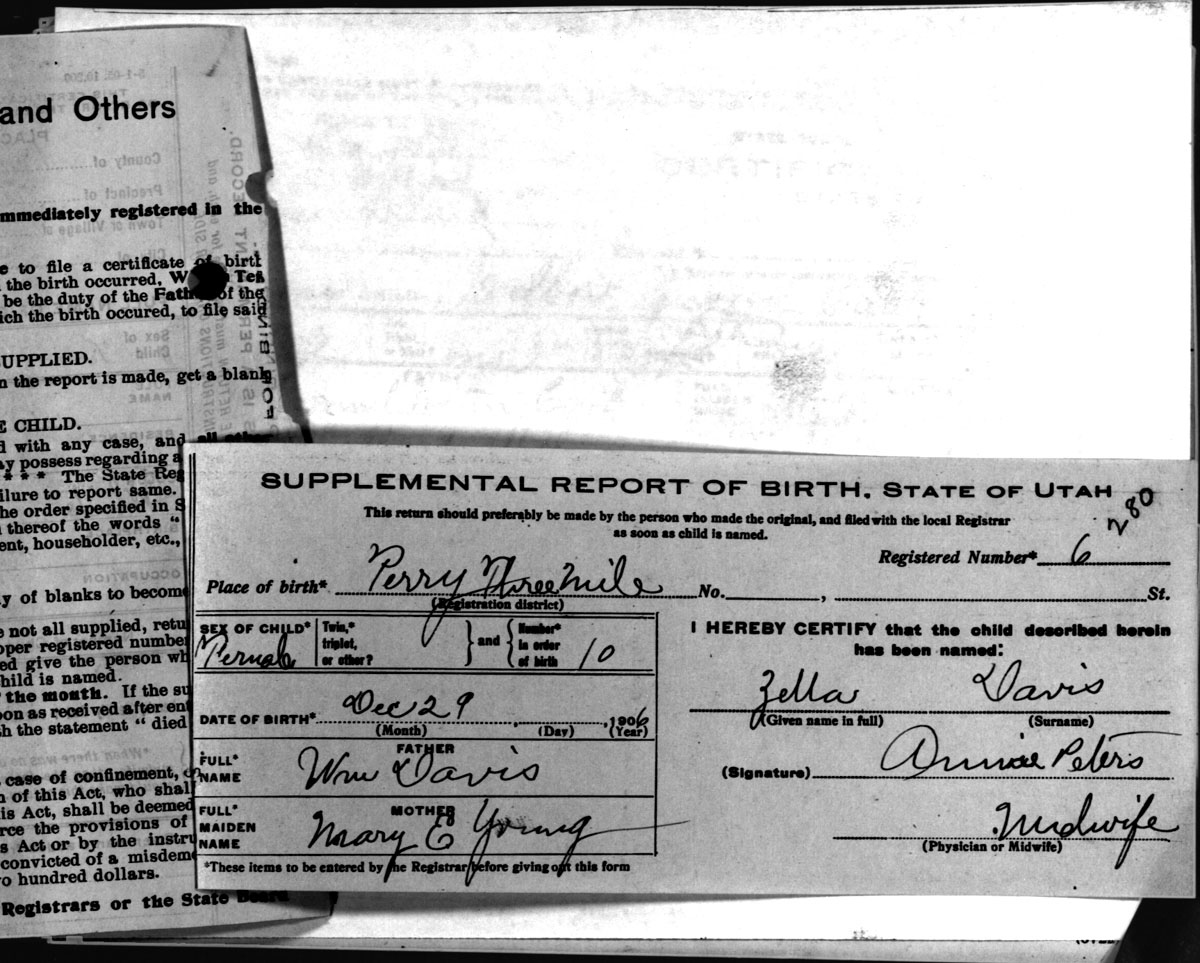 and Others
mmediately registered in the
e to file a certificate of birth
the birth occurred, W
be the duty of the Father of the
ich the birth occured, to file said
UPPLIED.
n the report is made, get a blank
E CHILD.
d with any case, and all other
ay possess regarding a
* * * * The State Reg
ilure to report same.
he order specified in S
thereof the words “
ent, householder, etc.,
y of blanks to become
e not all supplied, retu
oper registered number
ed give the person wh
hild is named.
the month. If the su
oon as received after ent
h the statement “ died
case of confinement,
n of this Act, who shal
is Act, shall be deemed
rce the provisions of
s Act or by the instru
convicted of a misdeme
o hundred dollars.
Registrars or the State Board
SUPPLEMENTAL REPORT OF BIRTH, STATE OF UTAH
280
This return should preferably be made by the person who made the original, and filed with the local Registrar
as soon as child is named.
Registered Number* 6
Place of birth* Perry Three Mile No. , St.
(Registration district)
SEX OF CHILD* Female
Twin,* triplet, or other?
and
Number* in order of birth 10
I HEREBY CERTIFY that the child described herein
has been named:
Zella Davis
(Given name in full) (Surname)
DATE OF BIRTH* Dec 29 , 1906
(Month) (Day) (Year)
FATHER
FULL* NAME Wm Davis
(Signature) Annie Peters
MOTHER
FULL* MAIDEN NAME Mary E Young
Midwife
(Physician or Midwife)
*These items to be entered by the Registrar before giving out this form